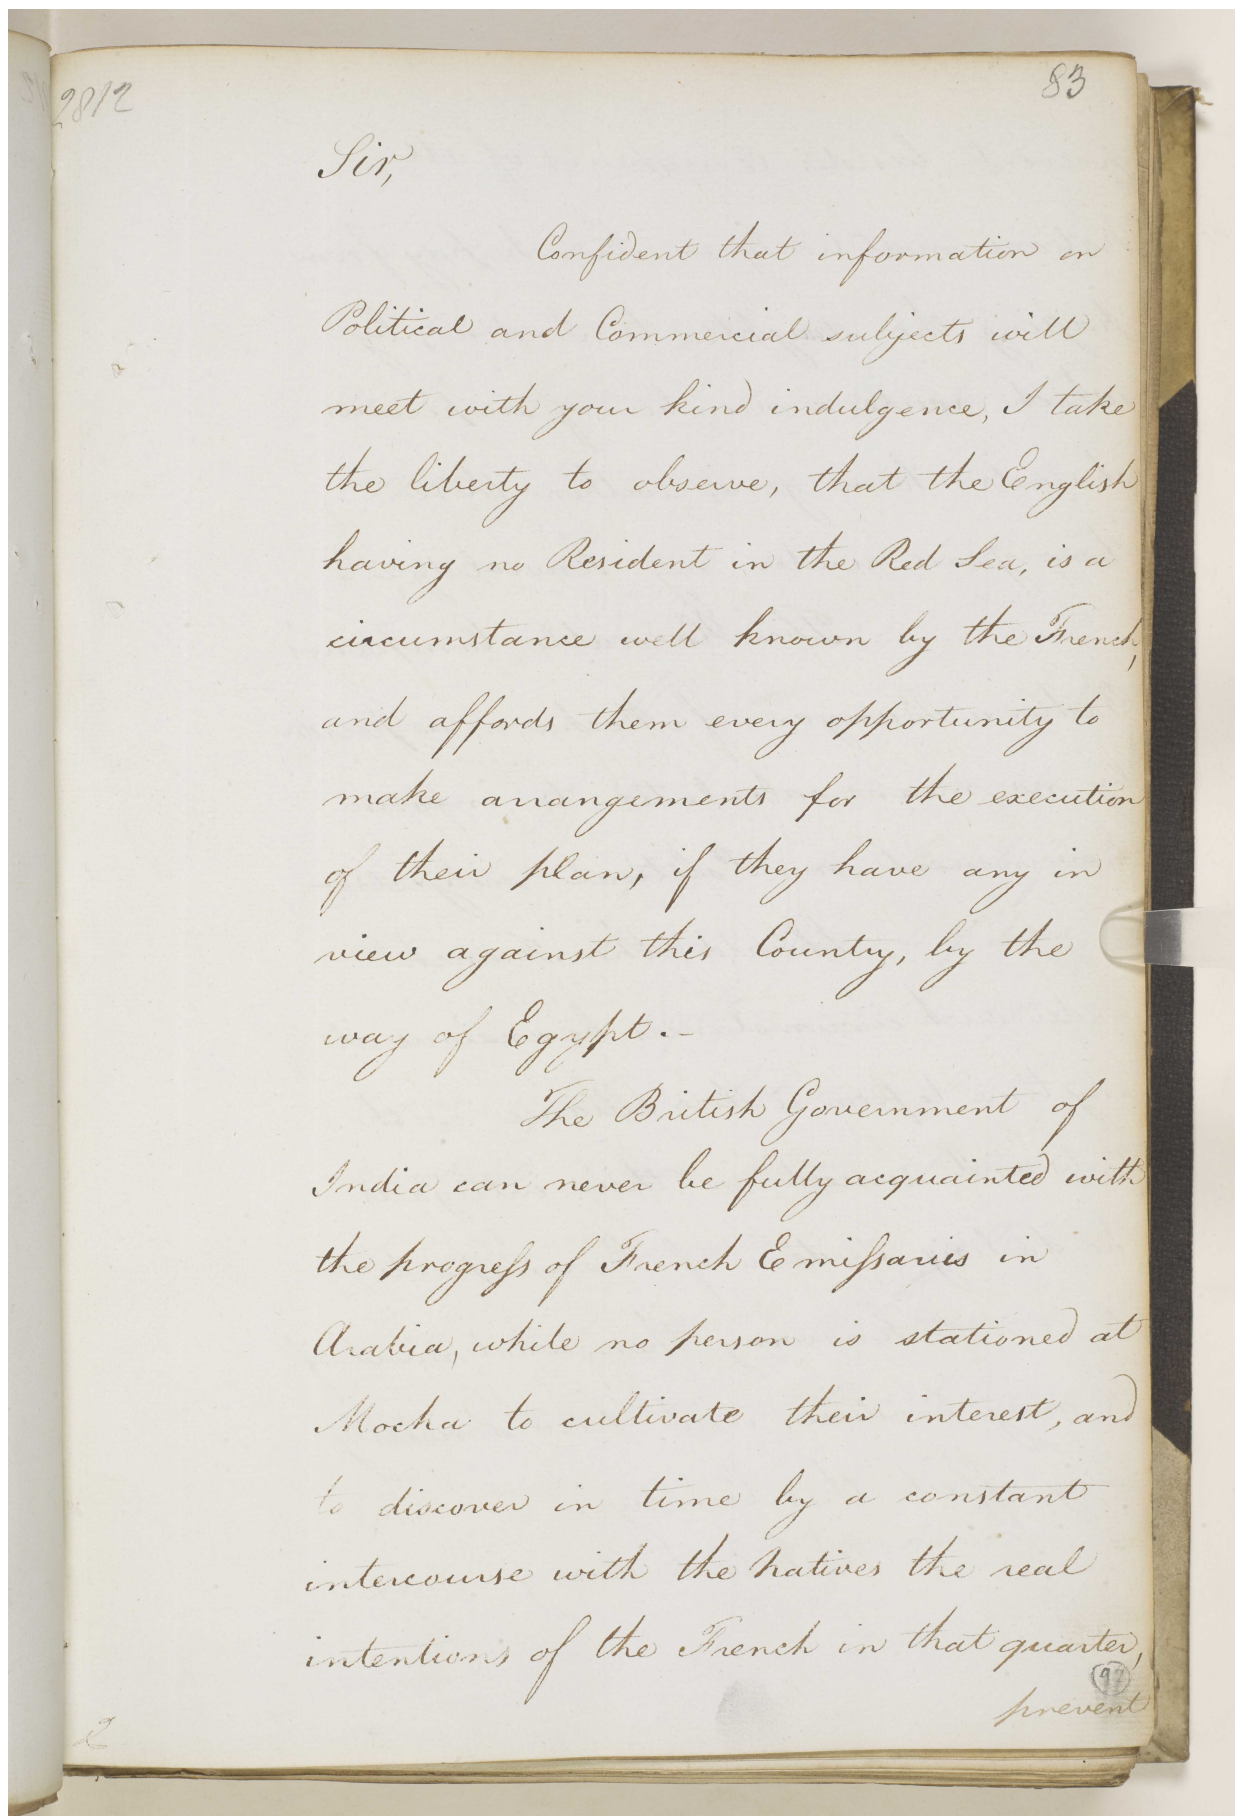 2812
83
Sir,
Confident that information on
Political and Commercial subjects will
meet with your kind indulgence, I take
the liberty to observe, that the English
having no Resident in the Red Sea, is a
circumstance well known by the French,
and affords them every opportunity to
make arrangements for the execution
of their plan, if they have any in
view against this Country, by the
way of Egypt.-
The British Government of
India can never be fully acquainted with
the progreſs of French Emiſsaries in
Arabia, while no person is stationed at
Mocha to cultivate their interest, and
to discover in time by a constant
intercourse with the Natives the real
intentions of the French in that quarter,
97
prevent
2